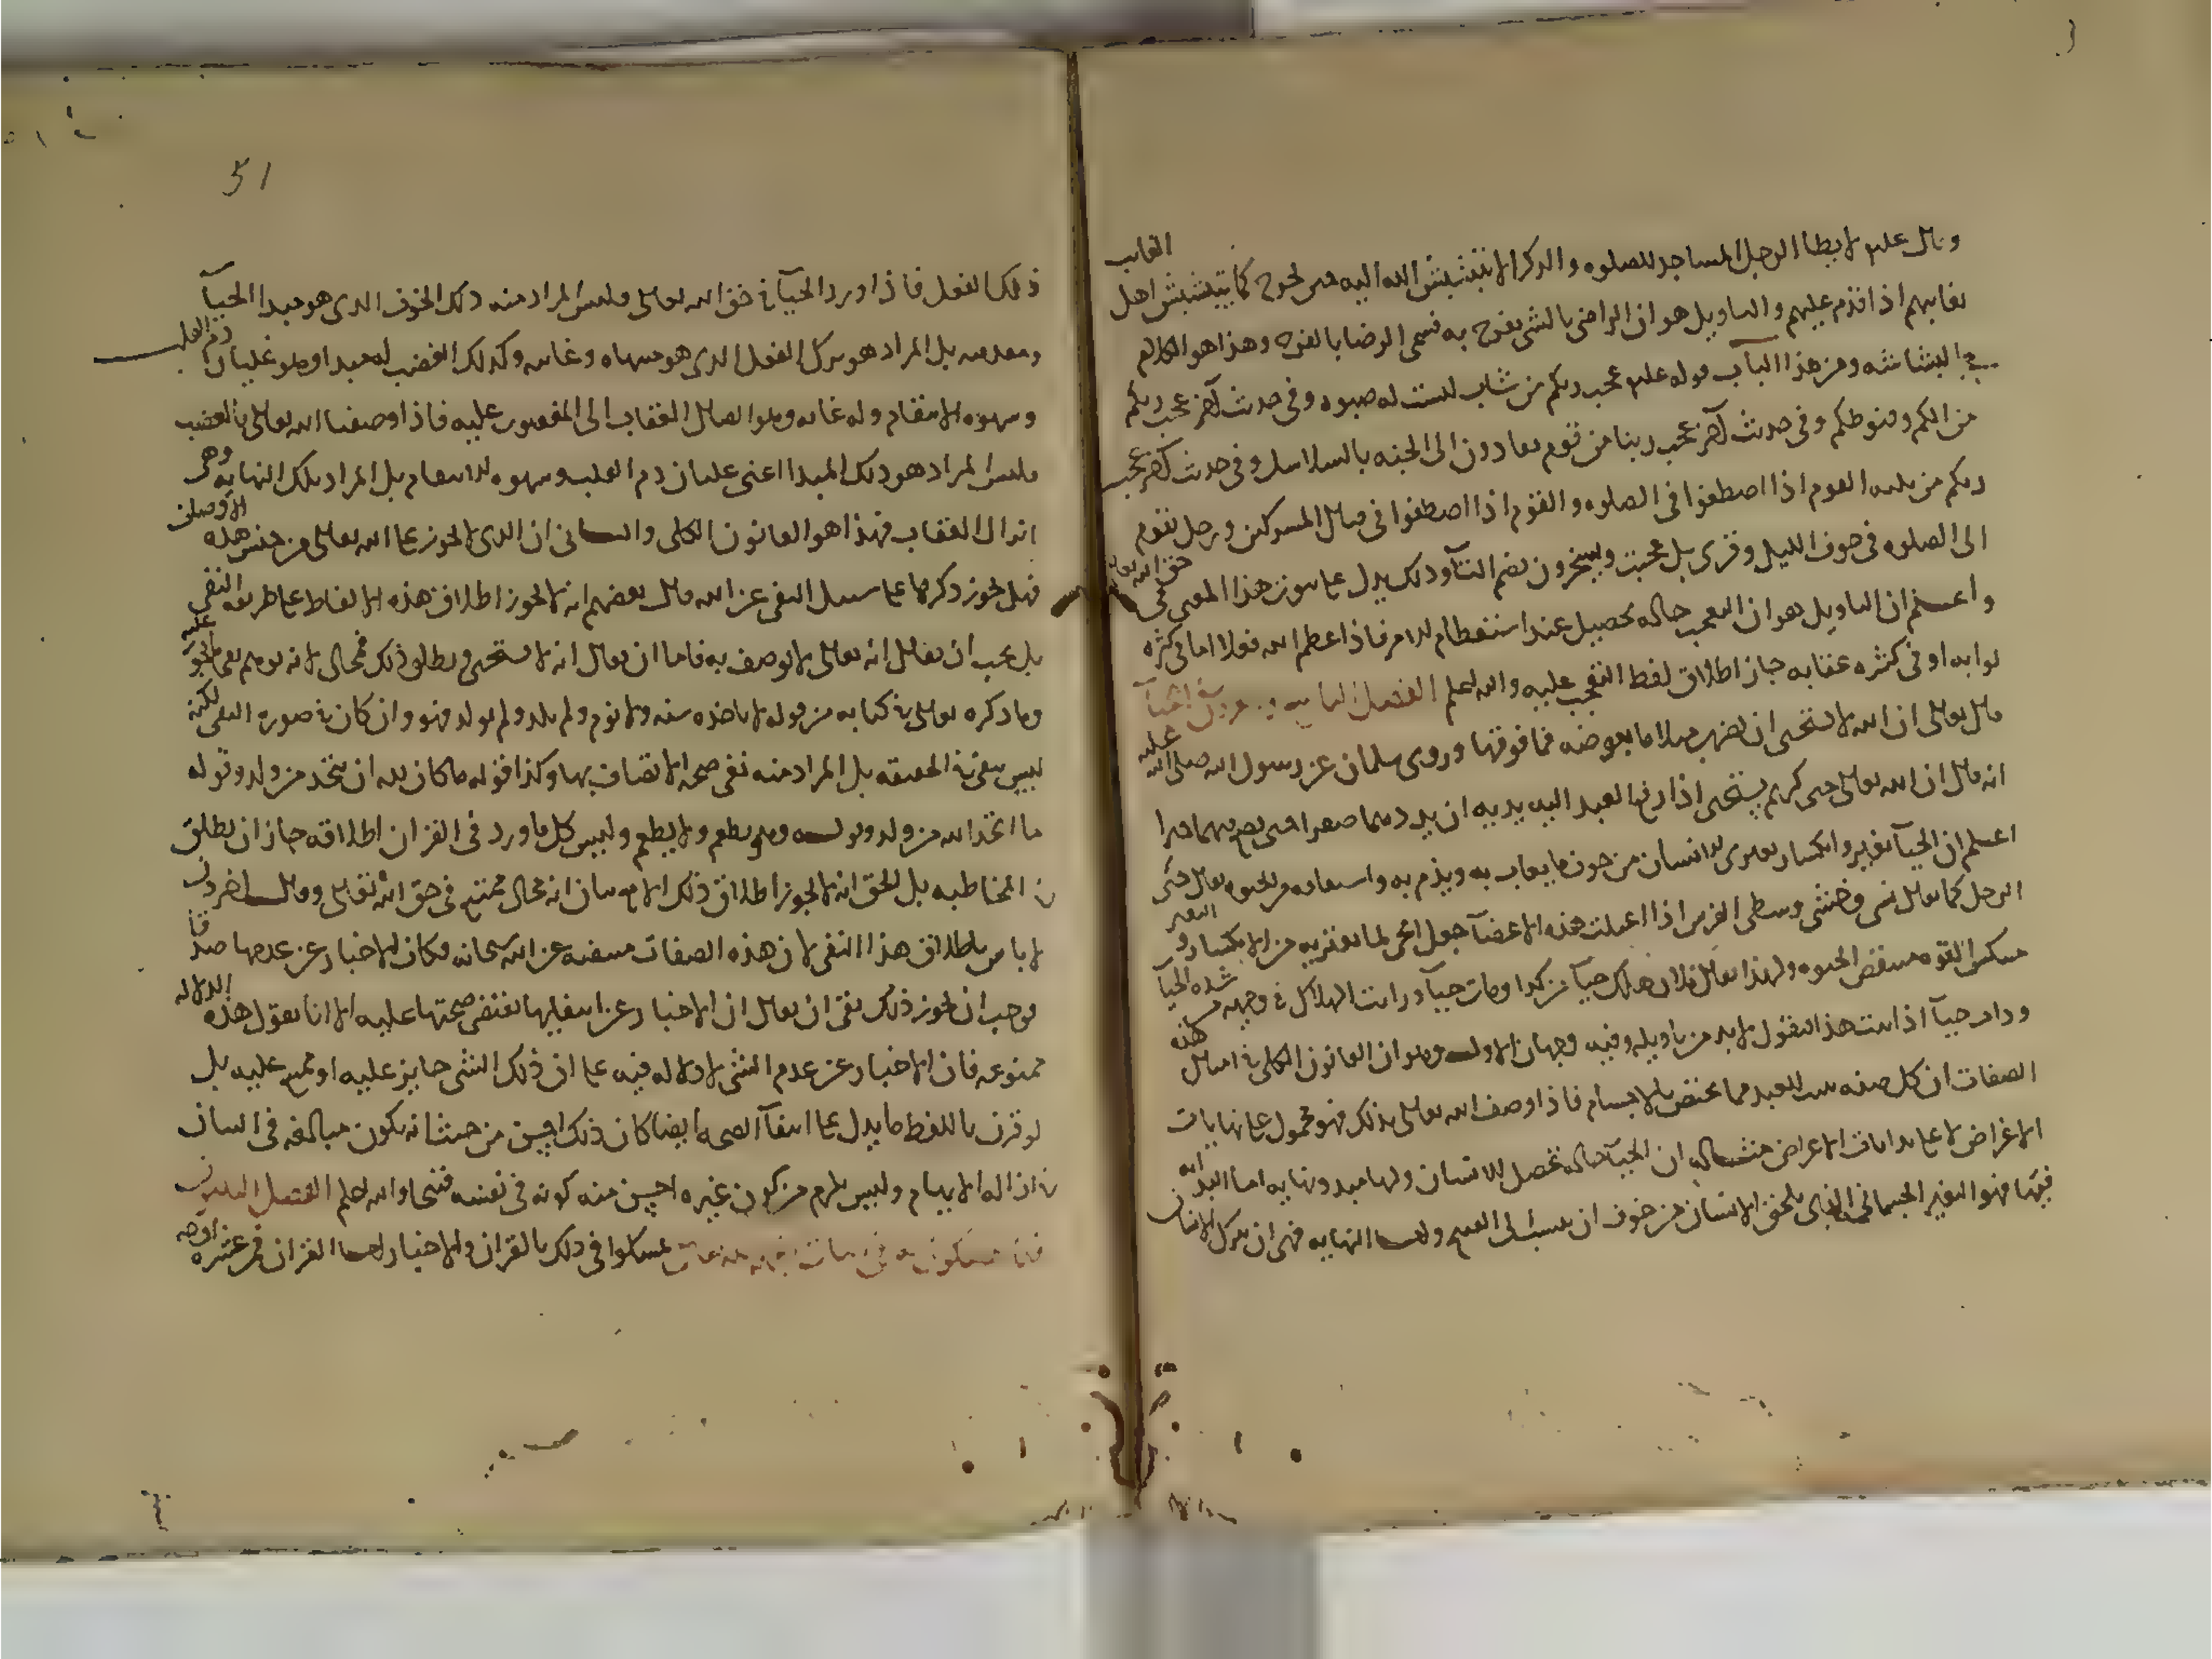 وقال علم لا يطا الرجل المساجد للصلوه والذكر الا يتبشبش الله اليه حين يخرج كما يتبشبش اهل الغايب
بغايبهم اذا قدم عليهم والتاويل هو ان الراضى بالشى يفرح به فسمى الرضا بالفرح وهذا هو الكلام
فى البشاشه ومن هذا الباب قوله علم عجب ربكم من شاب ليست له صبوه وفى حديث آخر عجب ربكم
من الكم وقنوطكم وفى حديث آخر عجب ربنا من قوم يقادون الى الجنه بالسلاسل وفى حديث آخر عجب
ربكم من ثلثه القوم اذا اصطفوا فى الصلوه والقوم اذا اصطفوا فى قتال المشركين ورجل يقوم
الى الصلوه فى جوف الليل وقرى بل عجبت ويسخرون بضم التآ وذلك يدل على ثبوت هذا المعنى فى حق الله تعالى
واعلم ان التاويل هو ان التعجب حاله تحصل عند استعظام الامر فاذا عظم الله فعلا اما فى كثره
ثوابه او فى كثره عقابه جاز اطلاق لفظ التعجب عليه والله اعلم الفصل
قال تعالى ان الله لا يستحى ان يضرب مثلا ما بعوضه فما فوقها وروى سلمان عن رسول الله صلى الله عليه
انه قال ان الله تعالى حى كريم يستحى اذا رفع العبد اليه يديه ان يردهما صفرا حتى يضع فيهما خيرا
اعلم ان الحيآ تغير وانكسار يعترى الانسان من خوف ما يعاب به ويذم به واشتقاقه من الحيوه يقال حيى
الرجل كما يقال نسى وخشى وشظى الفرس اذا اعتلت هذه الاعضآ جعل الحى لما يعتريه من الانكسار والتغير
منكس القوه منتقص الحيوه ولهذا يقال فلان هلك حيآ من كذا ومات حيآ ورايت الهلاك فى وجهه من شده الحيآ
وذاب حيآ اذا ثبت هذا فنقول لا بد من تاويله وفيه وجهان الاول وهو ان القانون الكلى فى امثال هذه
الصفات ان كل صفه تثبت للعبد مما يختص بالاجسام فاذا وصف الله تعالى بذلك فهو محمول على نهايات
الاعراض لا على بدايات الاعراض مثاله ان الحيآ حاله تحصل للانسان ولها مبدا ونهايه اما البدايه
فيها فهو التغير الجسمانى الذى يلحق الانسان من خوف ان ينسب الى القبيح واما النهايه فهى ان يترك الانسان
51
ذلك الفعل فاذا ورد الحيآ فى حق الله تعالى فليس المراد منه ذلك الخوف الذى هو مبدا الحيآ
ومقدمته بل المراد هو ترك الفعل الذى هو منتهاه وغايته وكذلك الغضب له مبدا وهو غليان دم القلب
وشهوه الانتقام وله غايه وهو ايصال العقاب الى المغضوب عليه فاذا وصفنا الله تعالى بالغضب
فليس المراد هو ذلك المبدا اعنى غليان دم القلب وشهوه الانتقام بل المراد تلك النهايه وهى
انزال العقاب فهذا هو القانون الكلى والثانى ان الذى لا يجوز على الله تعالى من جنس هذه الاوصاف
فهل يجوز ذكرها على سبيل النفى عن الله قال بعضهم انه لا يجوز اطلاق هذه الالفاظ على طريقه النفى
بل يجب ان يقال انه تعالى لا يوصف به فاما ان يقال انه لا يستحى ويطلق ذلك فمحال لانه يوهم نفى ما يجوز عليه
وما ذكره تعالى فى كتابه من قوله لا تاخذه سنه ولا نوم ولم يلد ولم يولد فهو وان كان فى صوره النفى لكنه
ليس بنفى فى الحقيقه بل المراد منه نفى صحه الاتصاف بها وكذا قوله ما كان لله ان يتخذ من ولد وقوله
ما اتخذ الله من ولد وقوله وهو يطعم ولا يطعم وليس كل ما ورد فى القران اطلاقه جاز ان يطلق
فى المخاطبه بل الحق انه لا يجوز اطلاق ذلك الا مع بيان انه محال ممتنع فى حق الله تعالى وقال اخرون
لا باس باطلاق هذا النفى لان هذه الصفات منتفيه عن الله سبحانه فكان الاخبار عن عدمها صدقا
فوجب ان يجوز ذلك بقى ان يقال ان الاخبار عن انتفايها يقتضى صحتها عليه الا انا نقول هذه الدلاله
ممنوعه فان الاخبار عن عدم الشى لا دلاله فيه على ان ذلك الشى جايز عليه او ممتنع عليه بل
لو قرن باللفظ ما يدل على انتفآ الصحه ايضا كان ذلك احسن من حيث انه يكون مبالغه فى البيان
فى ازاله الابهام وليس يلزم من كون غيره احسن منه كونه فى نفسه قبيحا والله اعلم الفصل
تمسكوا فى ذلك بالقران والاخبار اما القران فمن عشره اوجه